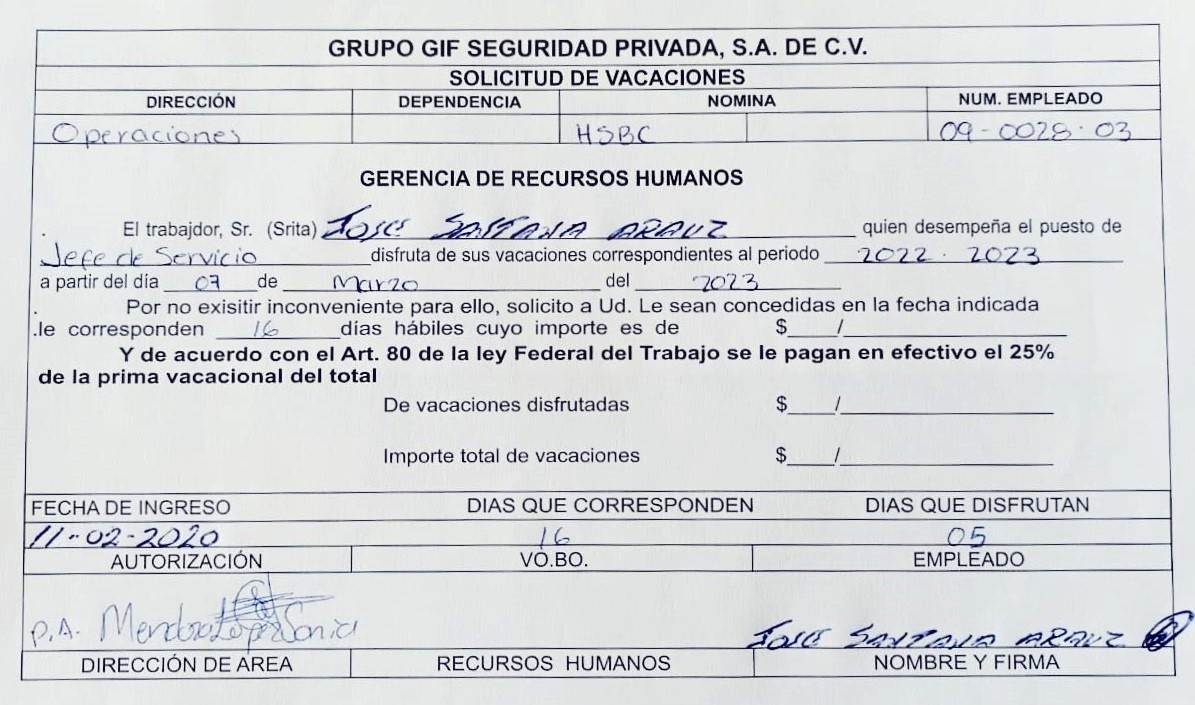 GRUPO GIF SEGURIDAD PRIVADA, S.A. DE C.V.
SOLICITUD DE VACACIONES
DIRECCIÓN DEPENDENCIA NOMINA NUM. EMPLEADO
Operaciones HSBC 09-0028-03
GERENCIA DE RECURSOS HUMANOS
. El trabajador, Sr. (Srita) JOSE SANTANA ARAUZ quien desempeña el puesto de
Jefe de Servicio disfruta de sus vacaciones correspondientes al periodo 2022-2023
a partir del día 07 de Marzo del 2023
. Por no exisitir inconveniente para ello, solicito a Ud. Le sean concedidas en la fecha indicada
.le corresponden 16 días hábiles cuyo importe es de $ /
Y de acuerdo con el Art. 80 de la ley Federal del Trabajo se le pagan en efectivo el 25%
de la prima vacacional del total
De vacaciones disfrutadas $ /
Importe total de vacaciones $ /
FECHA DE INGRESO DIAS QUE CORRESPONDEN DIAS QUE DISFRUTAN
11-02-2020 16 05
AUTORIZACIÓN VO.BO. EMPLEADO
P.A. Mendoza Lopez Sonia JOSE SANTANA ARAUZ
DIRECCIÓN DE AREA RECURSOS HUMANOS NOMBRE Y FIRMA